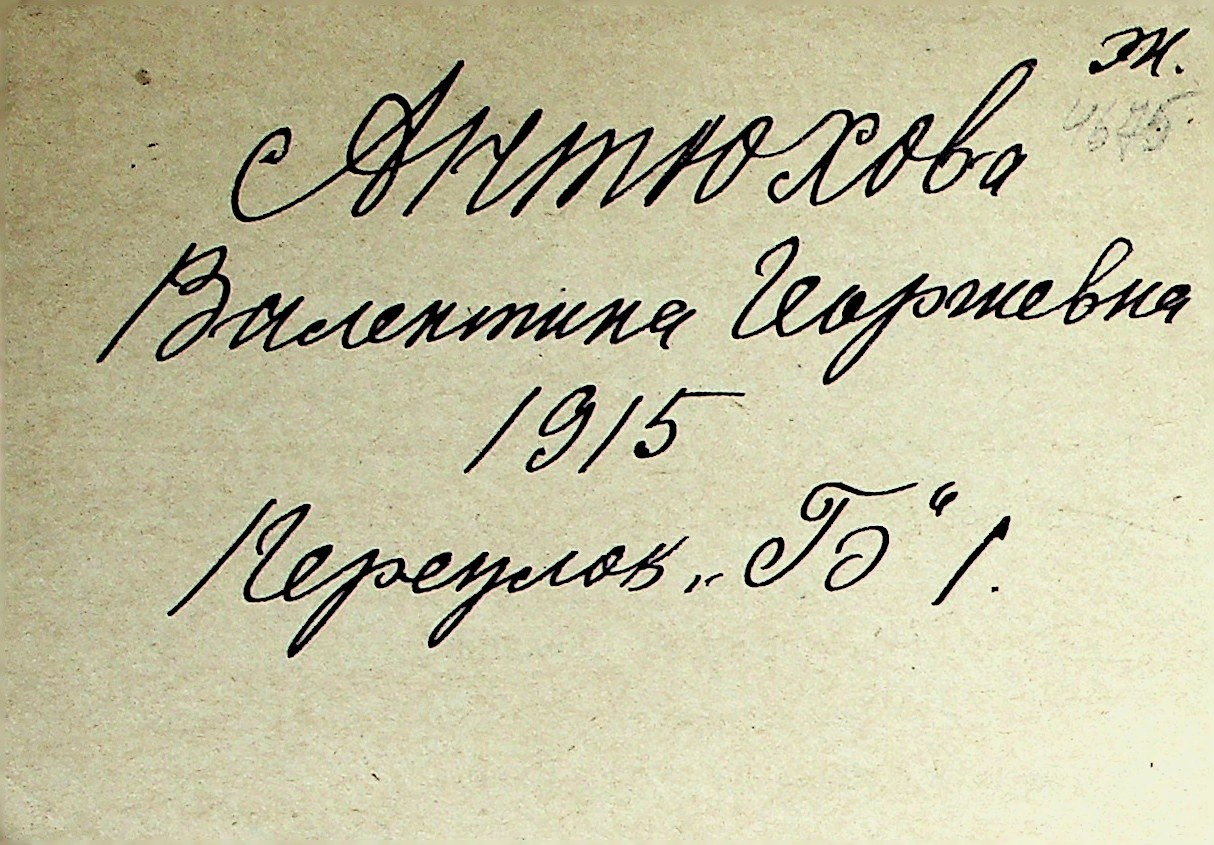 ж.
Антюхова
Валентина Георгиевна
1915
Переулок „Б“ 1.